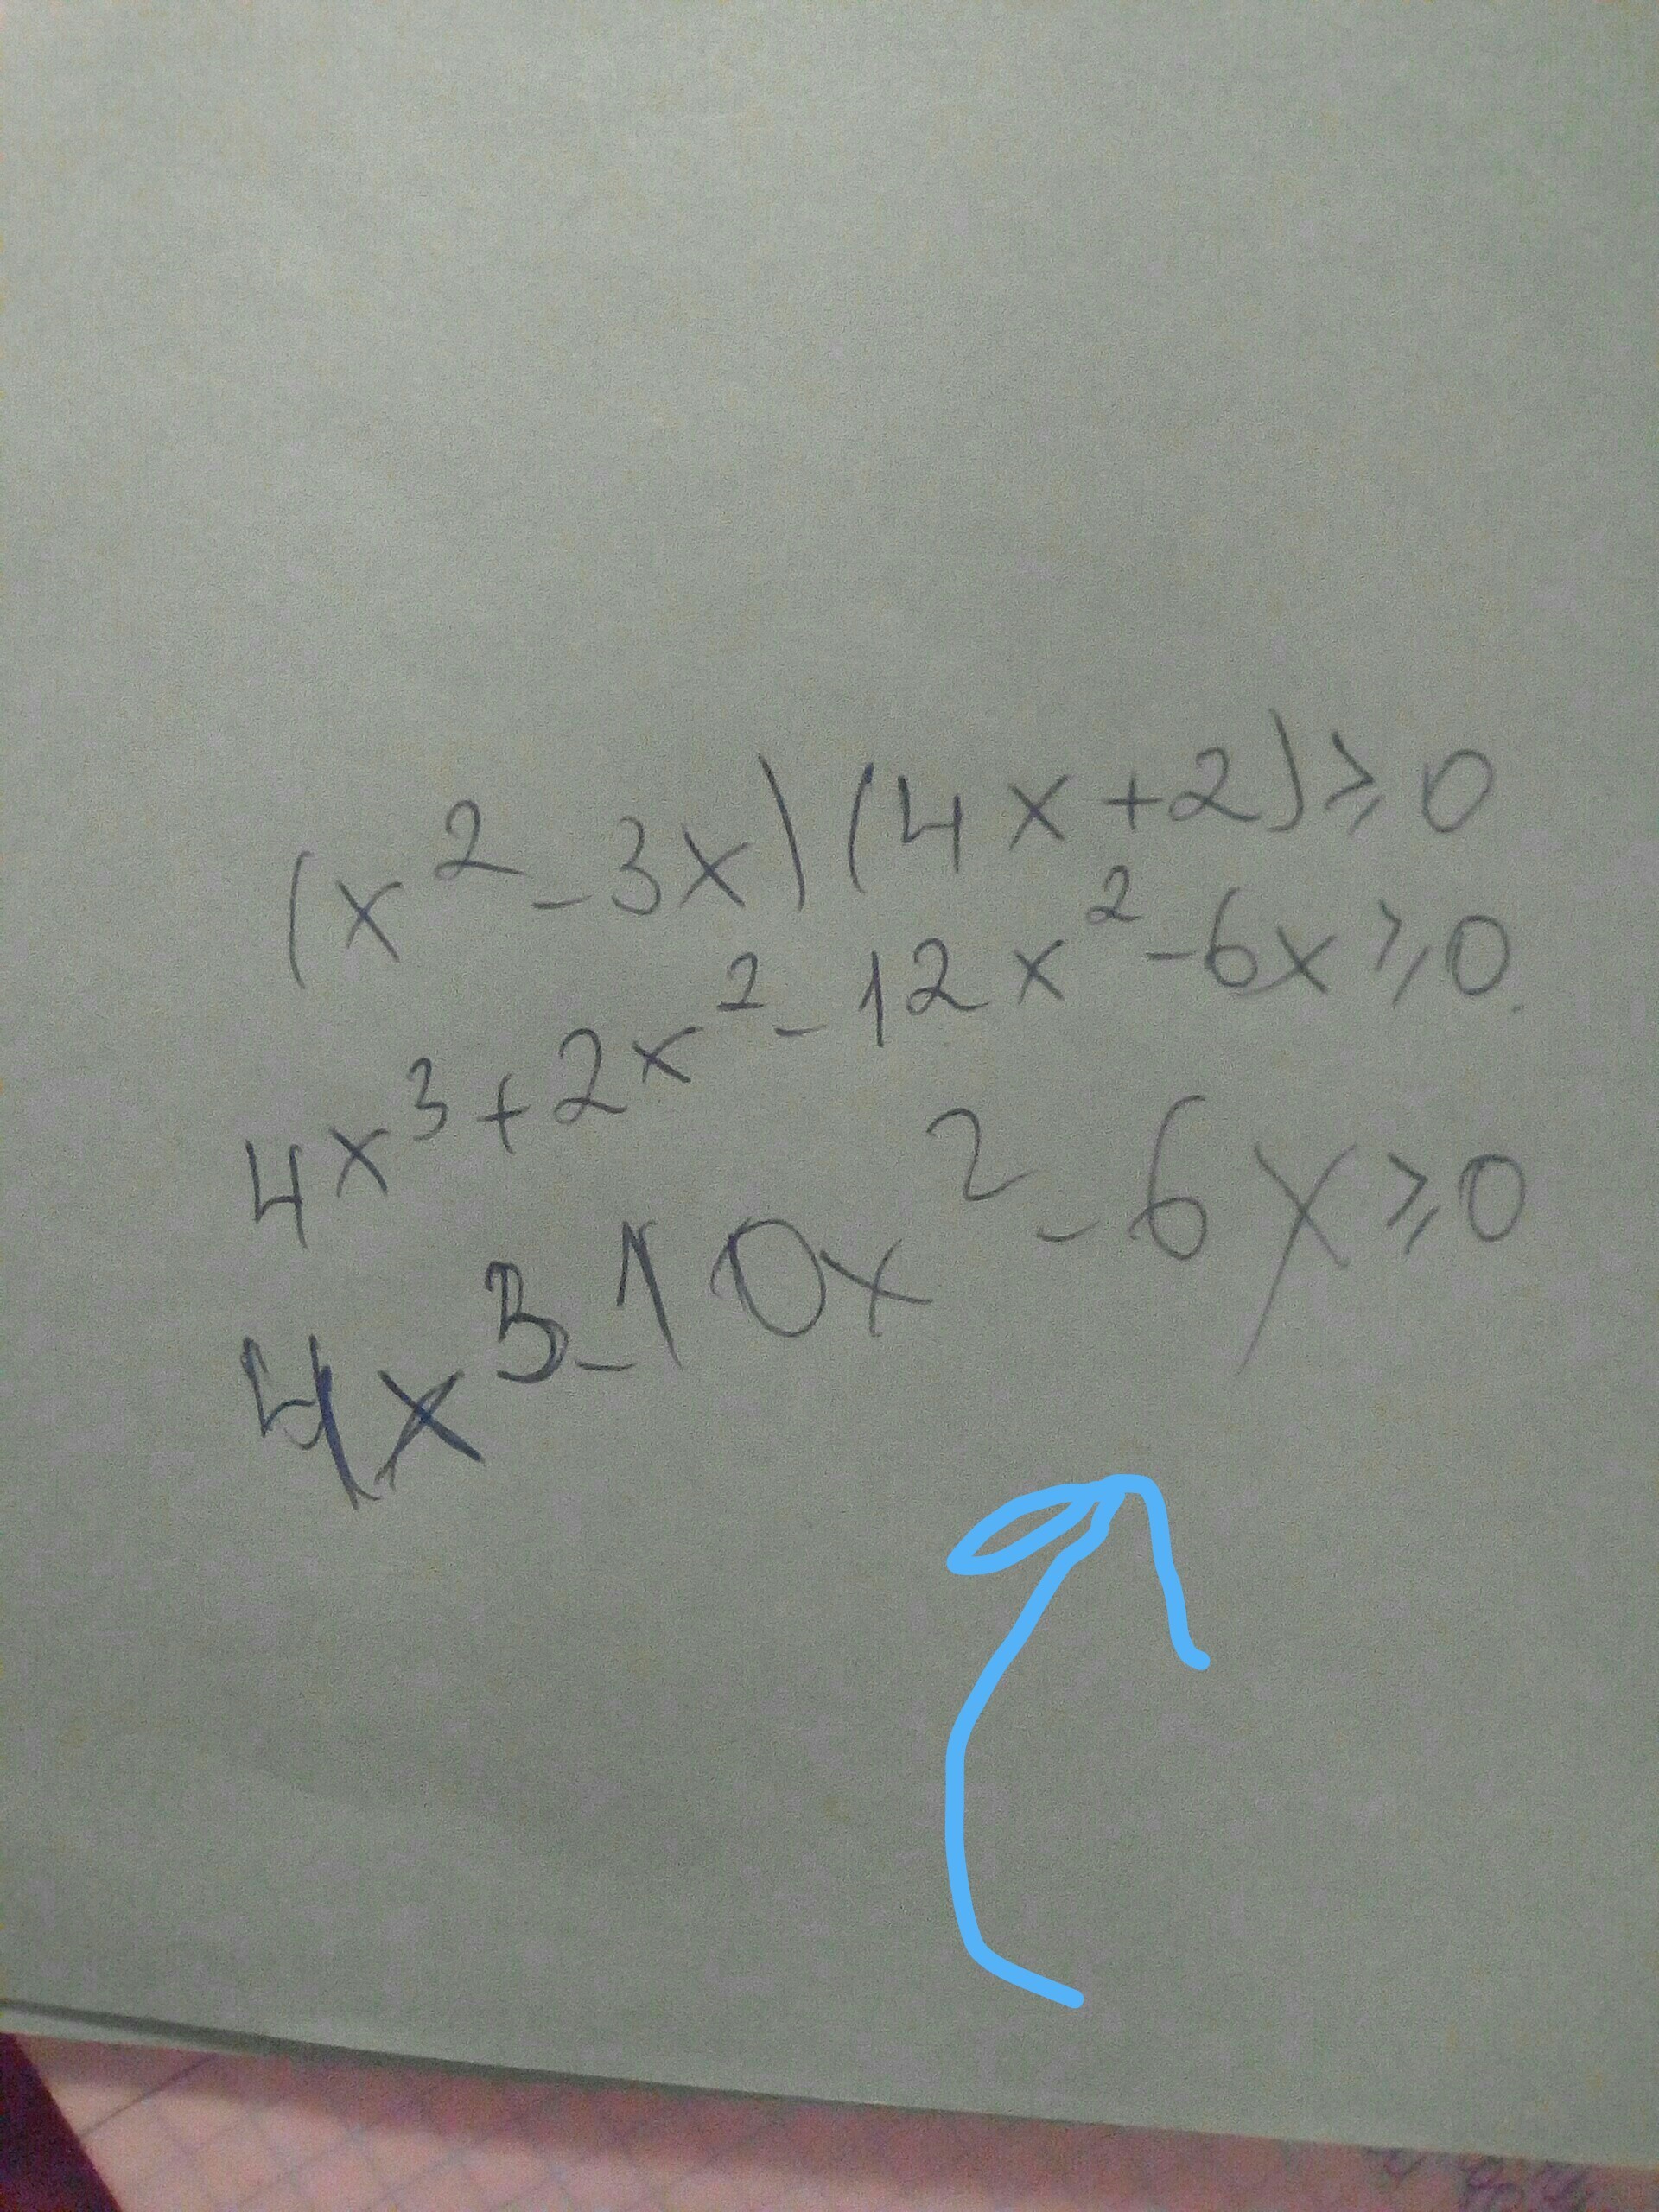 (x² - 3x)(4x + 2) ⩾ 0
4x³ + 2x² - 12x² - 6x ⩾ 0
4x³ - 10x² - 6x ⩾ 0